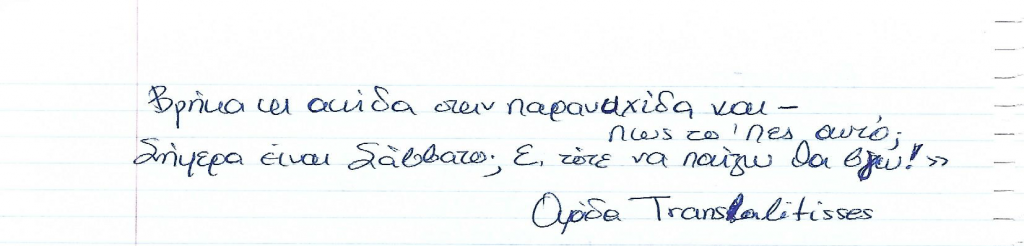 Βρήκα και ακίδα στην παρανυχίδα και –
πως το 'πες αυτό;
Σήμερα είναι Σάββατο; Ε, τότε να παίξω θα βγω! »
Ομάδα Translatitisses